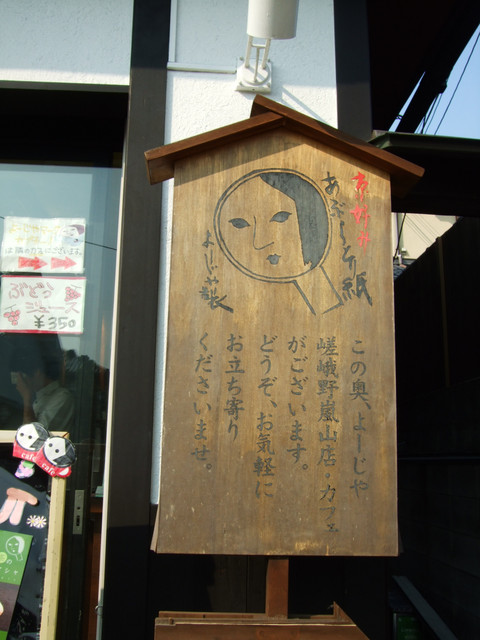 京都
あぶらとり紙
よーじや製
この奥、よーじや
嵯峨野嵐山店・カフェ
がございます。
どうぞ、お気軽に
お立ち寄り
くださいませ。
ぶどう
ジュース
¥350
cafe
cafe